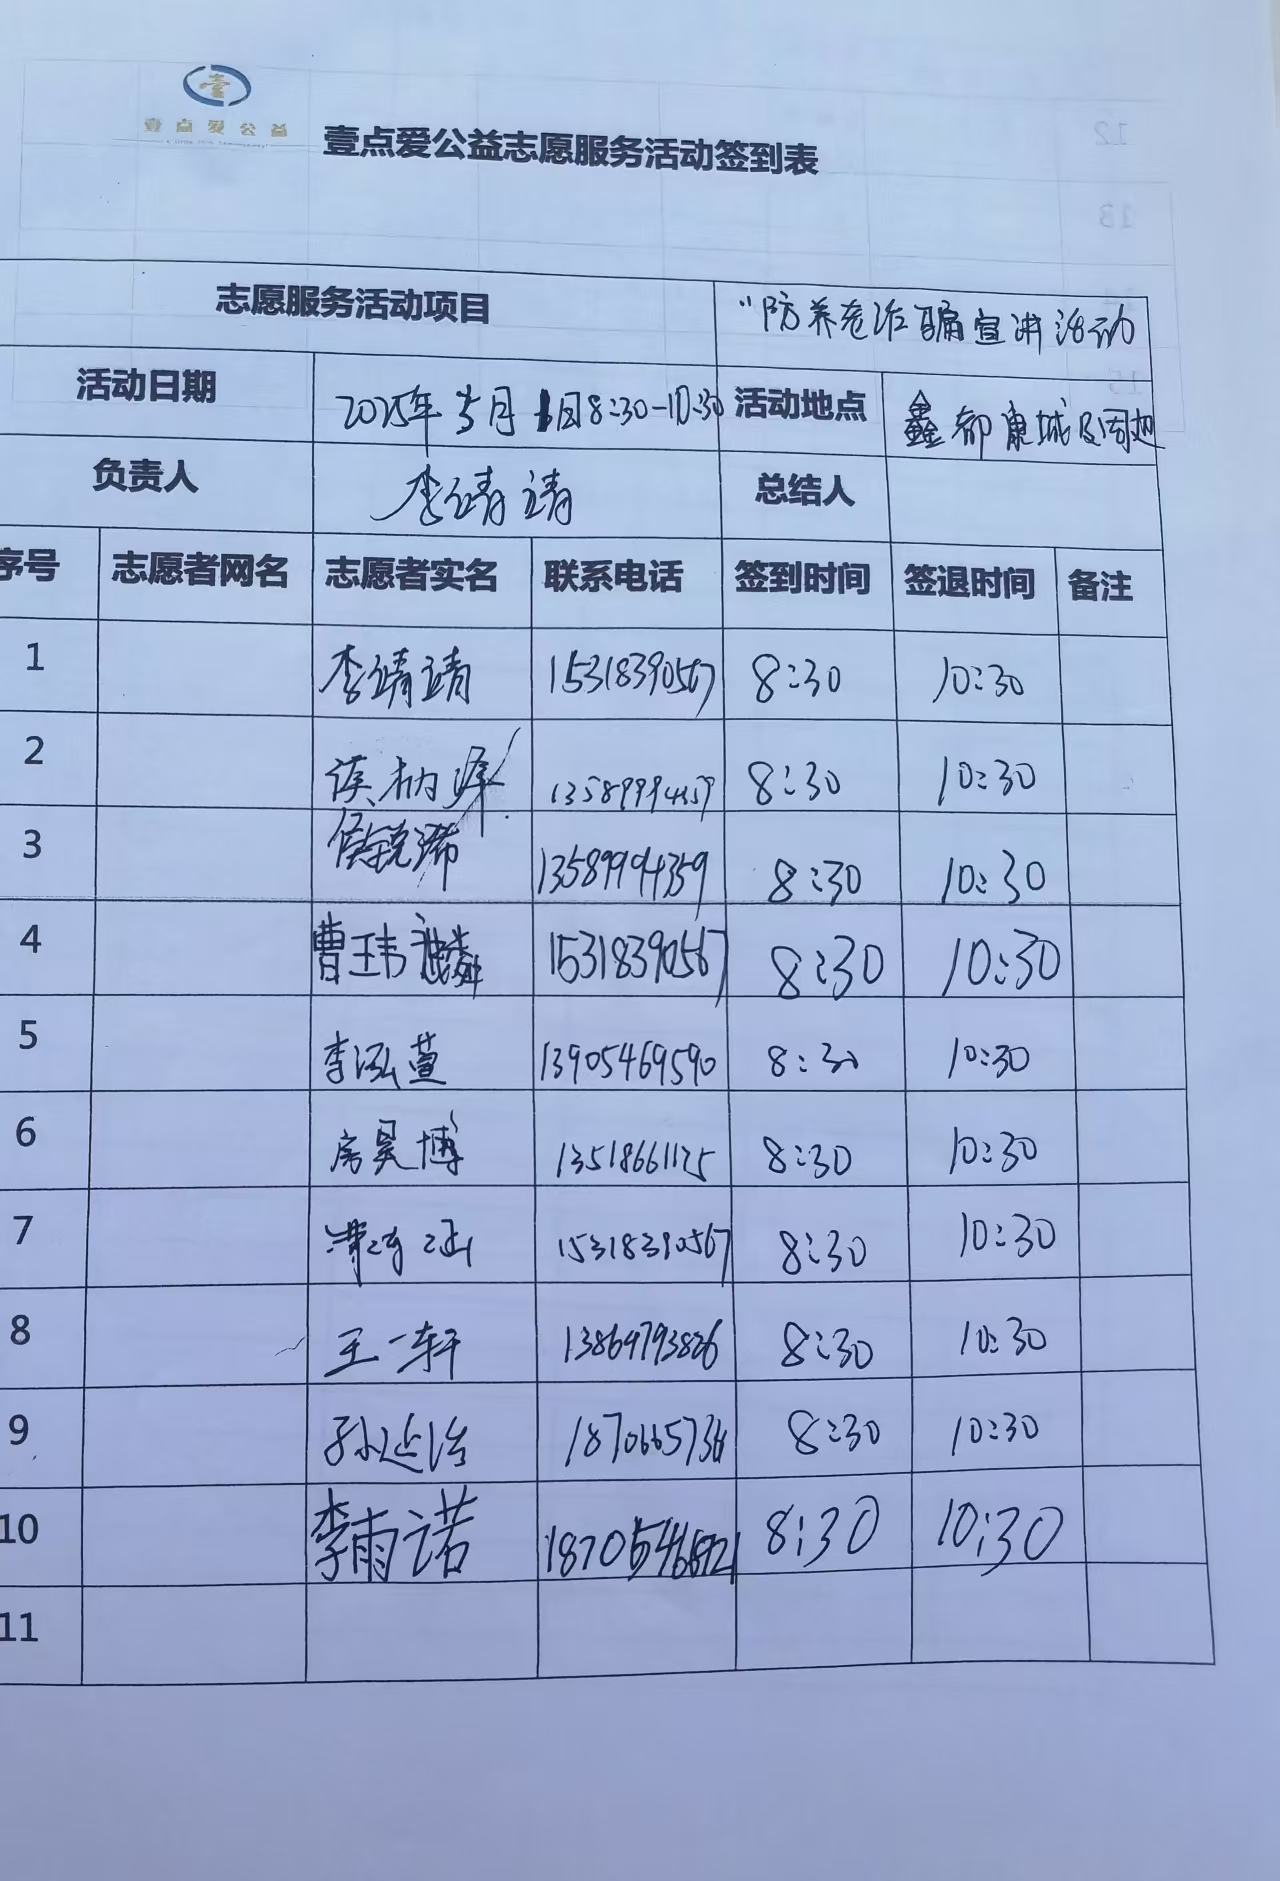 壹
壹点爱公益
壹点爱公益志愿服务活动签到表
志愿服务活动项目 "防养老诈骗宣讲活动
活动日期 2025年5月1日8:30-10:30 活动地点 鑫都康城及周边
负责人 李靖靖 总结人
序号 志愿者网名 志愿者实名 联系电话 签到时间 签退时间 备注
1 李靖靖 15318390567 8:30 10:30
2 8:30 10:30
3 侯锐浠 13589994359 8:30 10:30
4 曹玮麟 15318390567 8:30 10:30
5 李泓萱 13905469590 8:30 10:30
6 房昊博 13518661125 8:30 10:30
7 15318390567 8:30 10:30
8 王一轩 13864793836 8:30 10:30
9 孙延治 8:30 10:30
10 李雨诺 8:30 10:30
11
12
13
15